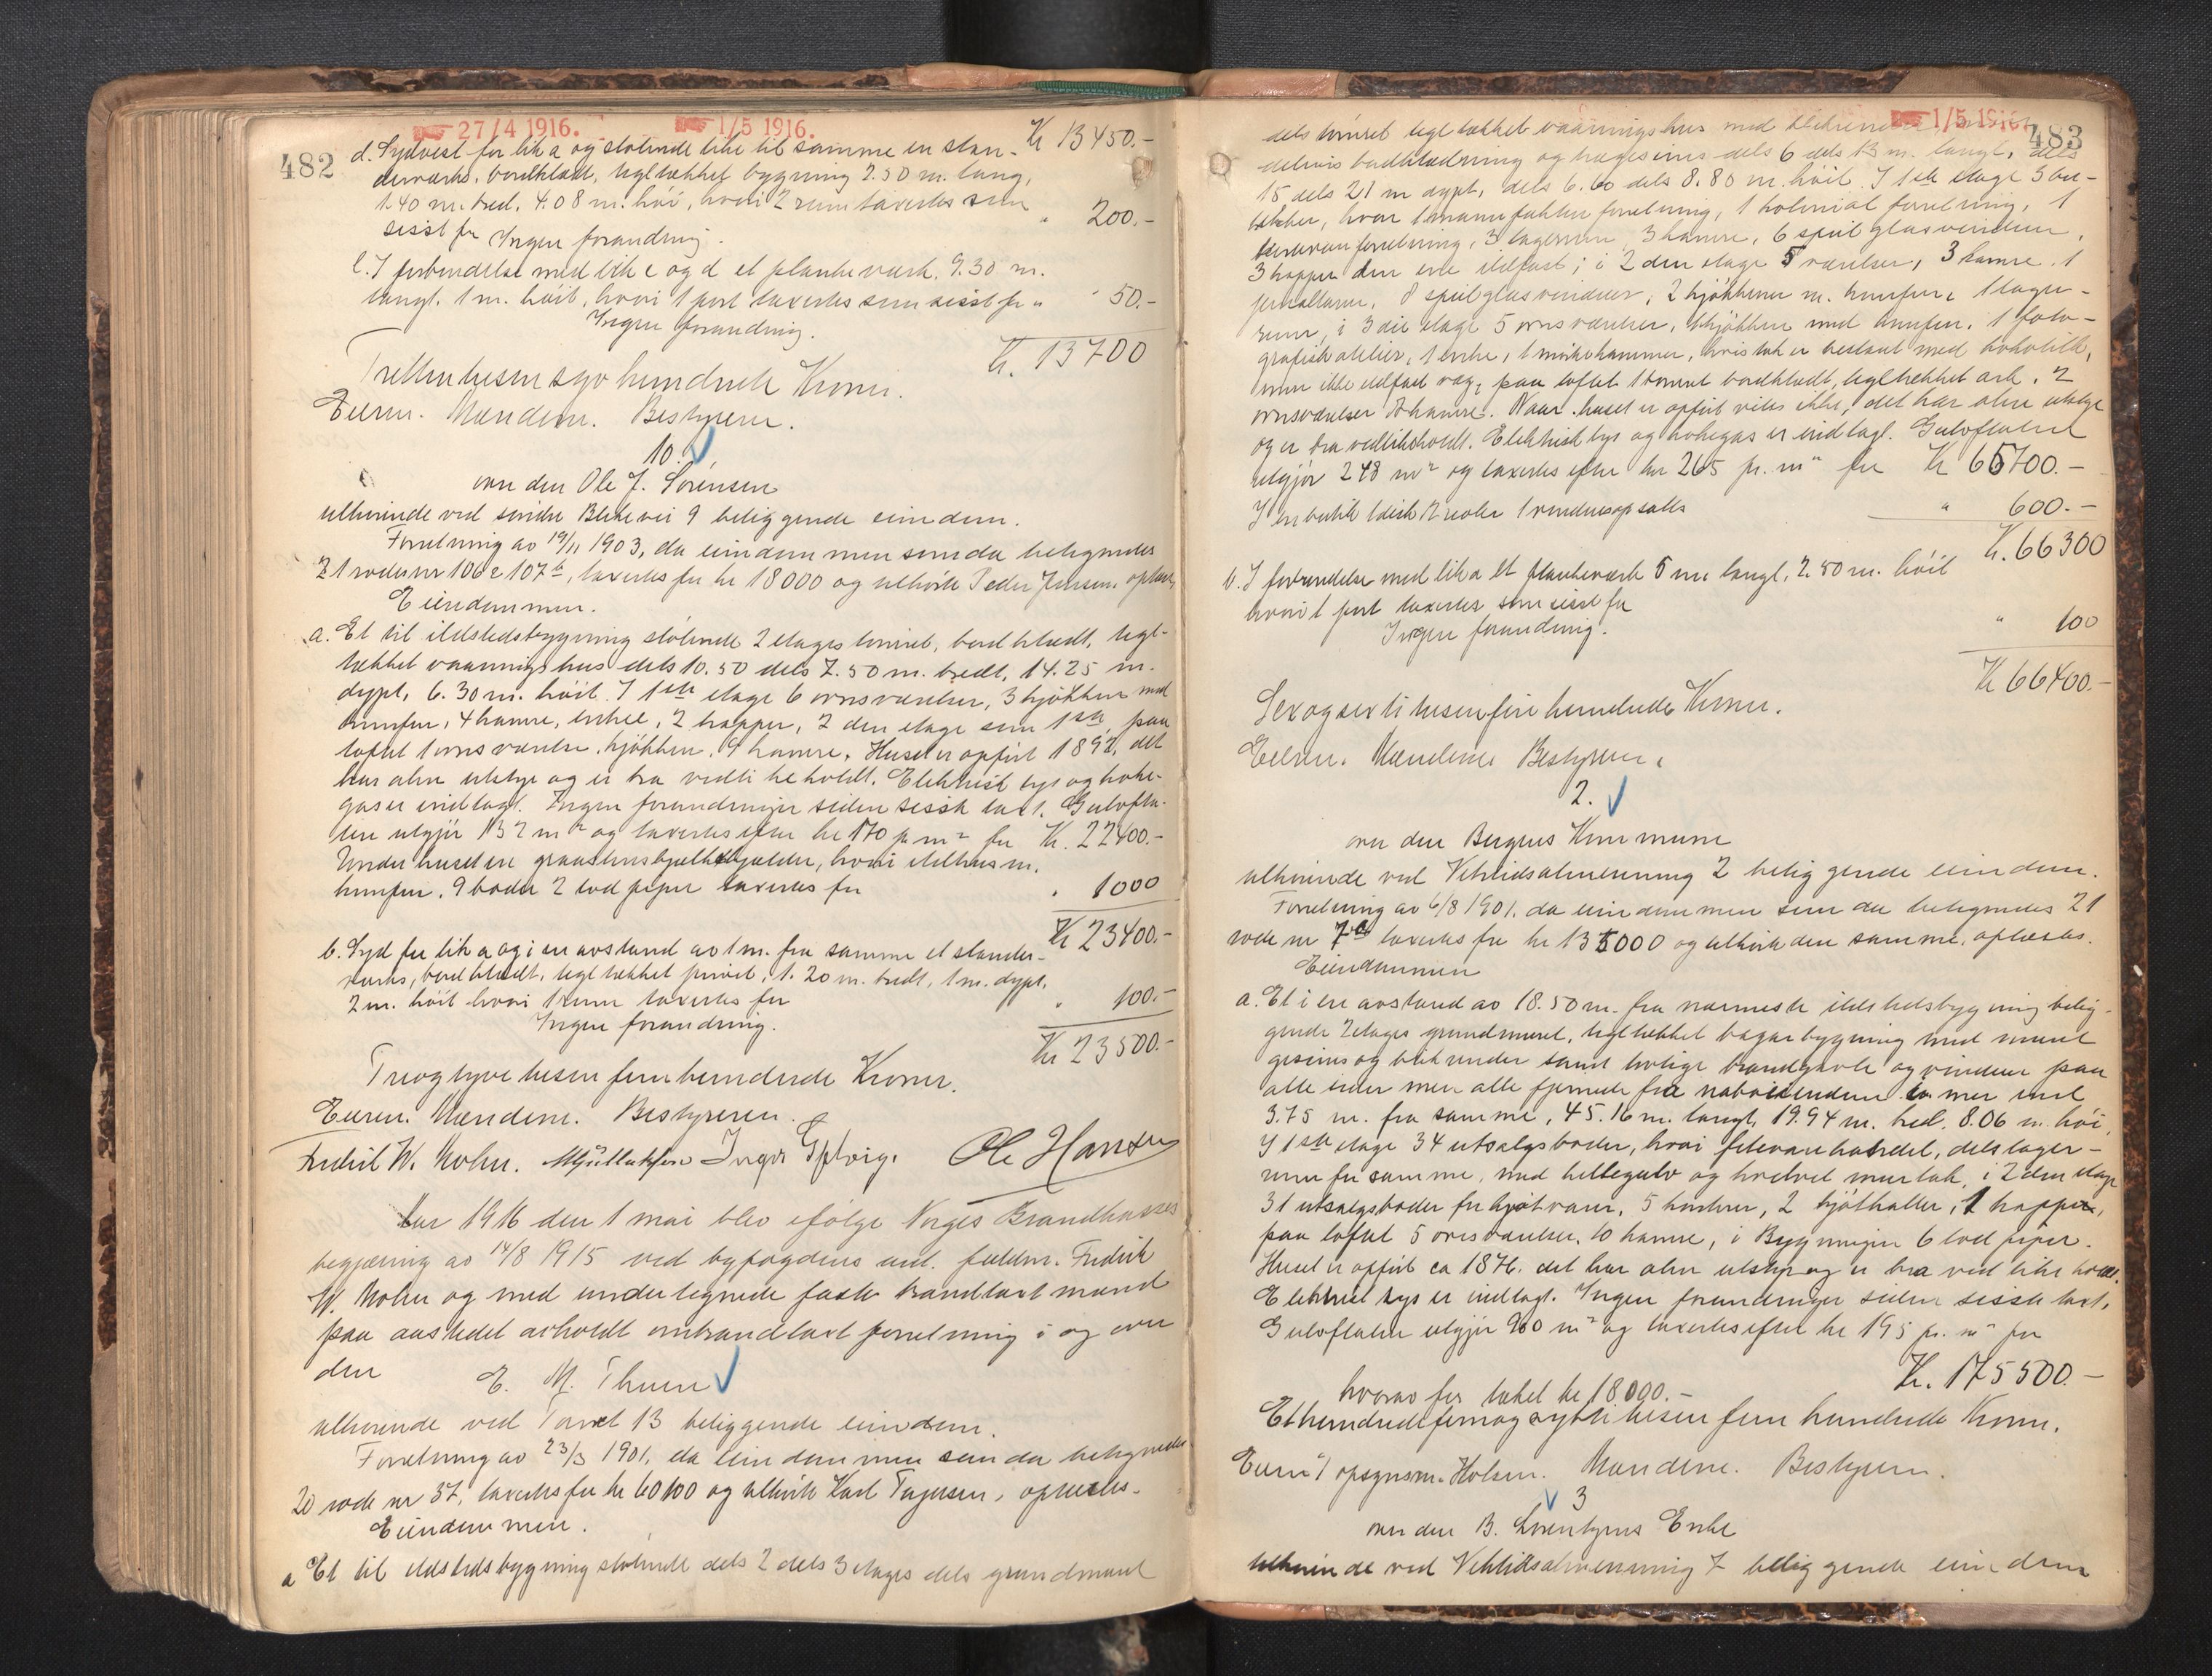 27/4 1916. 1/5 1916.
482
d. Sydvest for lit a og støtende like til samme en stan- Kr 13450.-
derværks, bordklædt, tegltækket bygning 2.50 m. lang,
1.40 m. bred, 4.08 m. høi, hvori 2 rum taxertes som
sisst for " 200.-
Ingen forandring.
e. I forbindelse med lit c og d et plankeværk 9.30 m.
langt. 1 m. høit, hvori 1 port taxertes som sisst for " 50.-
Ingen forandring.
Kr. 13700
Trettentusensyvhundrede Kroner.
Eieren. Mændene. Bestyreren.
10.
over den Ole J. Sørensen
tilhørende ved søndre Blekevei 9 beliggende eiendom.
Forretning av 19/11 1903, da eiendommen som da betegnedes
21 rodes nr 106 e 107 b, taxertes for kr 18000 og tilhørte Peder Jensen, oplæstes
Eiendommen.
a. Et til ildstedsbygning støtende 2 etages tømret, bordklædt, tegl-
tækket vaaningshus dels 10.50 dels 7.50 m. bredt, 14.25 m.
dypt, 6.30 m. høit. I 1ste etage 6 ovnsværelser, 3 kjøkken med
komfur, 4 kamre, entree, 2 trapper, 2 den etage som 1ste, paa
loftet 1 ovnsværelse, kjøkken, 4 kamre. Huset er opført 1892, det
har alm utstyr og er bra vedlikeholdt. Elektrisk lys og koke-
gas er indlagt. Ingen forandringer siden sisste taxt. Gulvfla-
ten utgjør 132 m² og taxertes efter kr 170 pr m² for Kr. 22400.-
Under huset en graastenshvælvet kjelder, hvori ildhus m.
komfur, 9 boder 2 lodpiper taxertes for " 1000
Kr 23400.-
b. Syd for lit a og i en avstand av 1 m. fra samme et stander-
værks, bordklædt, tegltækket privet, 1.20 m. bredt, 1 m. dypt,
2 m. høit hvori 1 rum taxertes for " 100.-
Ingen forandring.
Kr 23500.-
Treogtyvetusenfemhundrede Kroner.
Eieren. Mændene. Bestyreren.
Fredrik W. Mohn. Ole Hansen
Aar 1916 den 1 mai blev ifølge Norges Brandkasses
begjæring av 14/8 1915 ved byfogdens uut. fuldm. Fredrik
W. Mohn og med undertegnede faste brandtaxtmænd
paa aastedet avholdt ombrandtaxtforretning i og over
den E. M. Thuen
tilhørende ved Torvet 13 beliggende eiendom.
Forretning av 23/3 1901, da eiendommen som da betegnedes
20 rode nr 37, taxertes for kr 60100 og tilhørte Karl Torjusen, oplæstes.
Eiendommen.
a Et til ildstedsbygning støtende dels 2 dels 3 etages dels grundmuret
1/5 1916.
483
dels tømret tegltækket vaaningshus med
delvis bordklædning og træsims dels 6 dels 13 m. langt, dels
15 dels 21 m dypt, dels 6.60 dels 8.80 m. høit. I 1ste etage 3 bu-
tikker, hvor 1 manufakturforretning, 1 kolonialforretning, 1
forretning, 3 lagerrum, 3 kamre, 6 speilglasvinduer,
3 trapper den ene ildfast; i 2 den etage 5 værelser, 3 kamre. 1
8 speilglasvinduer, 2 kjøkkener m. komfur, 1 lager-
rum, i 3die etage 5 ovnsværelser, kjøkken med komfur, 1 foto-
grafisk atelier, 1 entre, 1 mørkekammer, hvis tak er beslaat med
men ikke ildfast væg, paa loftet 1 tømret bordklædt, tegltækket ark, 2
ovnsværelser, kamre. Naar huset er opført vites ikke, det har alm utstyr
og er bra vedlikeholdt. Elektrisk lys og kokegas er indlagt. Gulvflaten
utgjør 248 m² og taxertes efter kr 265 pr. m² for Kr 65700.-
I en butik 1 disk 2 reoler 1 vindusopsats " 600.-
Kr. 66300
b. I forbindelse med lit a et plankeværk 5 m. langt, 2.50 m. høit
hvori 1 port taxertes som sisst for
Ingen forandring. " 100
Kr 66400.-
Sexogsextitusenfirehundrede Kroner.
Eieren. Mændene Bestyreren.
2.
over den Bergens Kommune
tilhørende ved Vetrlidsalmenning 2 beliggende eiendom.
Forretning av 6/8 1901, da eiendommen som da betegnedes 21
rode nr 7 a taxertes for kr 135000 og tilhørte den samme, oplæstes.
Eiendommen
a. Et i en avstand av 18.50 m. fra nærmeste ildstedsbygning belig-
gende 2 etages grundmuret, tegltækket bazarbygning med muret
gesims og blikrender samt lovlige brandgavle og vinduer paa
alle sider men alle fjernede fra naboeiendom mer end
3.75 m. fra samme, 45.16 m. langt, 19.94 m. bred. 8.06 m. høi,
I 1ste etage 34 utsalgsboder, hvori fetevarehandel, dels lager-
rum for samme, med hellegulv og hvelvet murtak, i 2 den etage
31 utsalgsboder for kjøtvarer, 5 kontorer, 2 kjøthaller, 1 trappe,
paa loftet 5 ovnsværelser, 10 kamre, i Bygningen 6 lodpiper.
Huset er opført ca 1876. det har alm utstyr og er bra vedlikeholdt.
Elektrisk lys er indlagt. Ingen forandringer siden sisste taxt.
Gulvflaten utgjør 900 m² og taxertes efter kr 195 pr. m² for
Kr. 175500.-
hvorav for taket kr 18000.-
Ethundredefemogsyttitusenfemhundrede Kroner.
Eieren v/ opsynsm. Holsen. Mændene. Bestyreren.
3
over den B. Lorentzens Enke
tilhørende ved Vetrlidsalmenning 7 beliggende eiendom